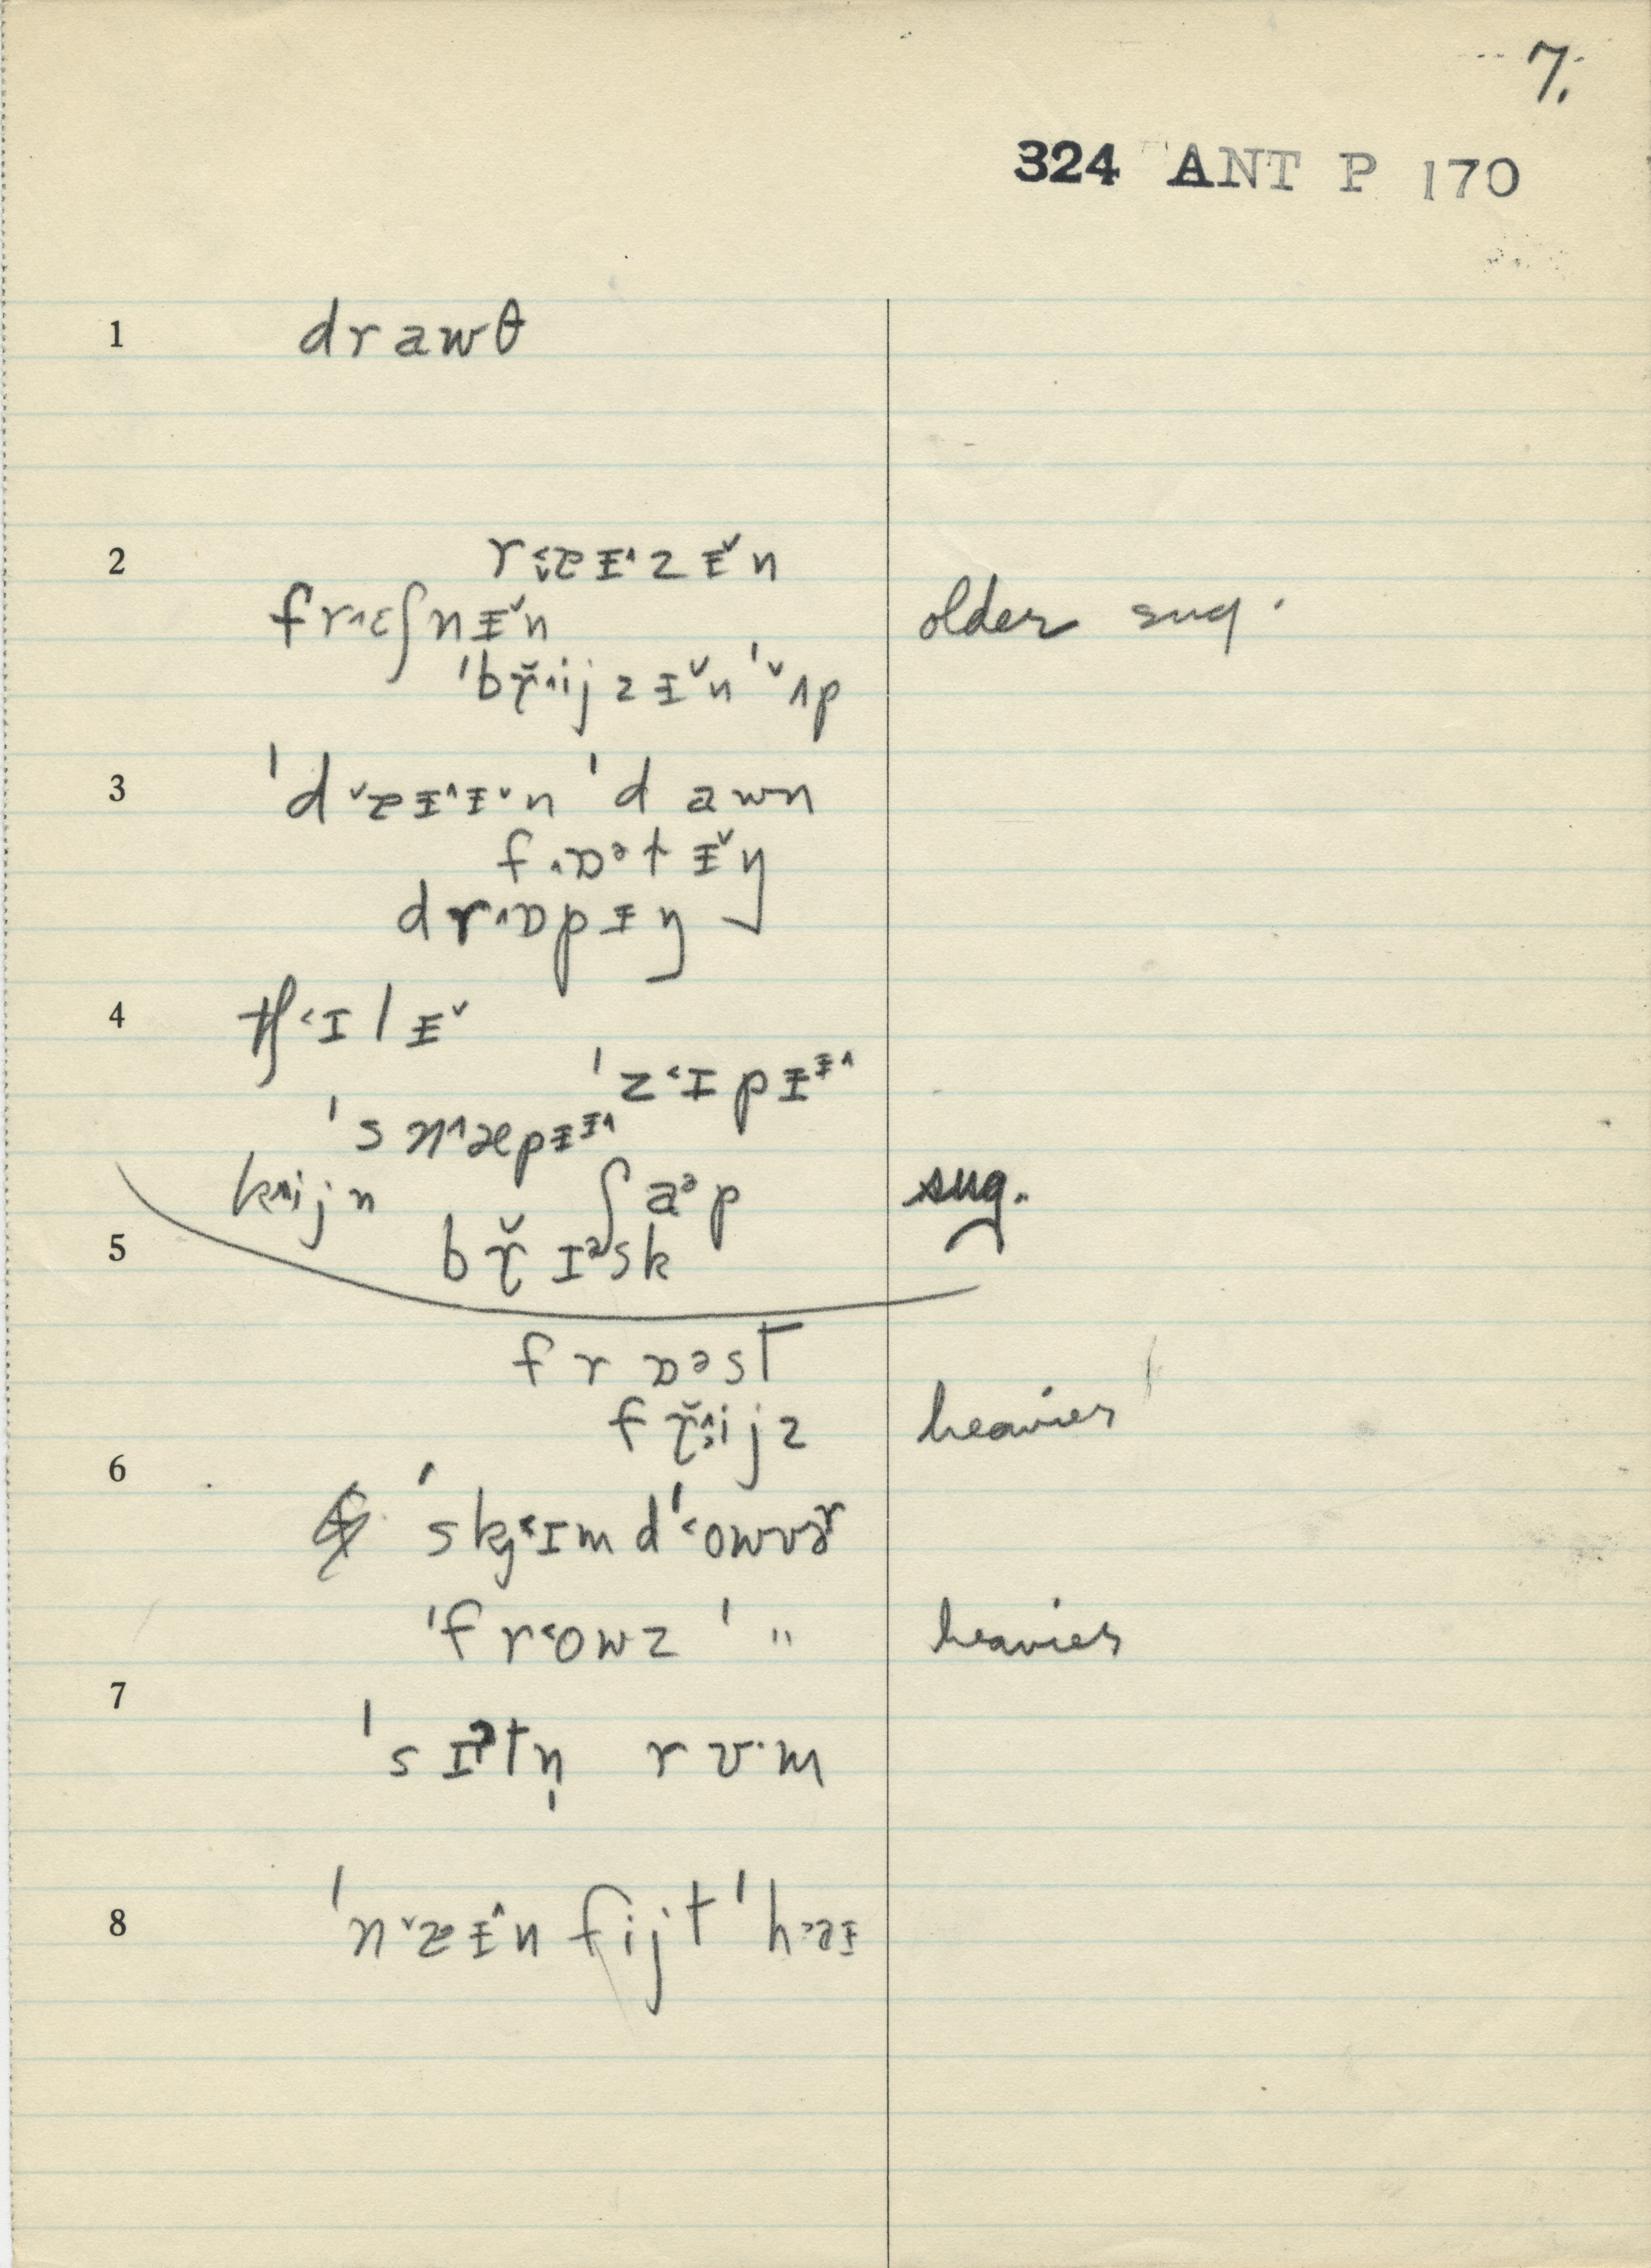 7.
324 ANT P 170
1 drawθ
2 r˂ɐᵻ˄zᵻ˅n
fr˄ɛʃnᵻ˅n older sug.
ˈbɤ̆˄ijzᵻ˅n ˈ˅ʌp
3 ˈd˅ɐᵻ˄ᵻ˅n ˈdawn
f˄ɒᵊtᵻ˅ŋ
dr˄ɒpᵻŋ
4 tʃ˂ɪlᵻ˅
ˈz˂ɪpᵻᵻ˄
ˈsn˄æpᵻᵻ˄
k˄ijn ʃaᵊp sug.
5 bɤ̆ɪᵊsk
frɒəst
fɤ̆˄ijz heavier
6 ˈskj˂ɪmdˈ˂owvəʳ
ˈfr˂owz ˈ " heavier
7 ˈsɪˀtn̩ rʊ·m
8 ˈn˅ɐᵻ˄nfijtˈh˃əᵻ